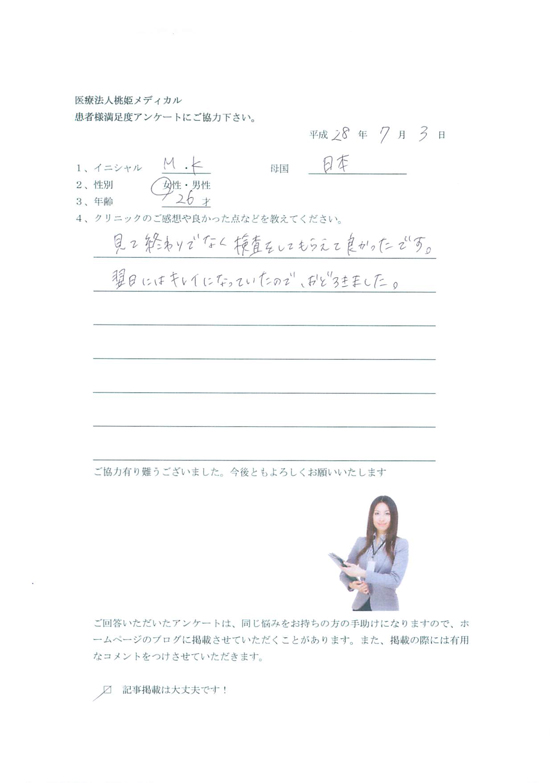 医療法人桃姫メディカル
患者様満足度アンケートにご協力下さい。
平成 28 年 7 月 3 日
1、イニシャル M.K 母国 日本
2、性別 女性・男性
3、年齢 26 才
4、クリニックのご感想や良かった点などを教えてください。
見て終わりでなく検査をしてもらえて良かったです。
翌日にはキレイになっていたので、おどろきました。
ご協力有り難うございました。今後ともよろしくお願いいたします
ご回答いただいたアンケートは、同じ悩みをお持ちの方の手助けになりますので、ホ
ームページのブログに掲載させていただくことがあります。また、掲載の際には有用
なコメントをつけさせていただきます。
☑ 記事掲載は大丈夫です！